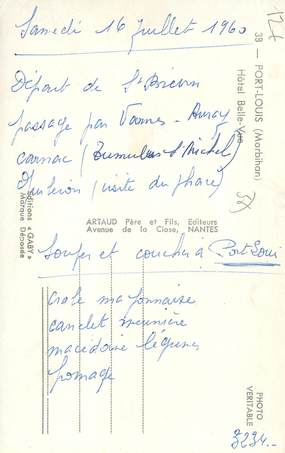 Samedi 16 juillet 1960
Départ de St Brévin
passage par Vannes - Auray
carnac (Tumulus St Michel)
Quiberon (visite du phare)
Souper et coucher à Port Louis
mayonnaise
carrelet meunière
macédoine légumes
fromage
12f
38 — PORT-LOUIS (Morbihan)
Hôtel Belle-Vue
Editions « GABY »
Marque Déposée
ARTAUD Père et Fils, Editeurs
Avenue de la Close, NANTES
PHOTO
VERITABLE
3234.-